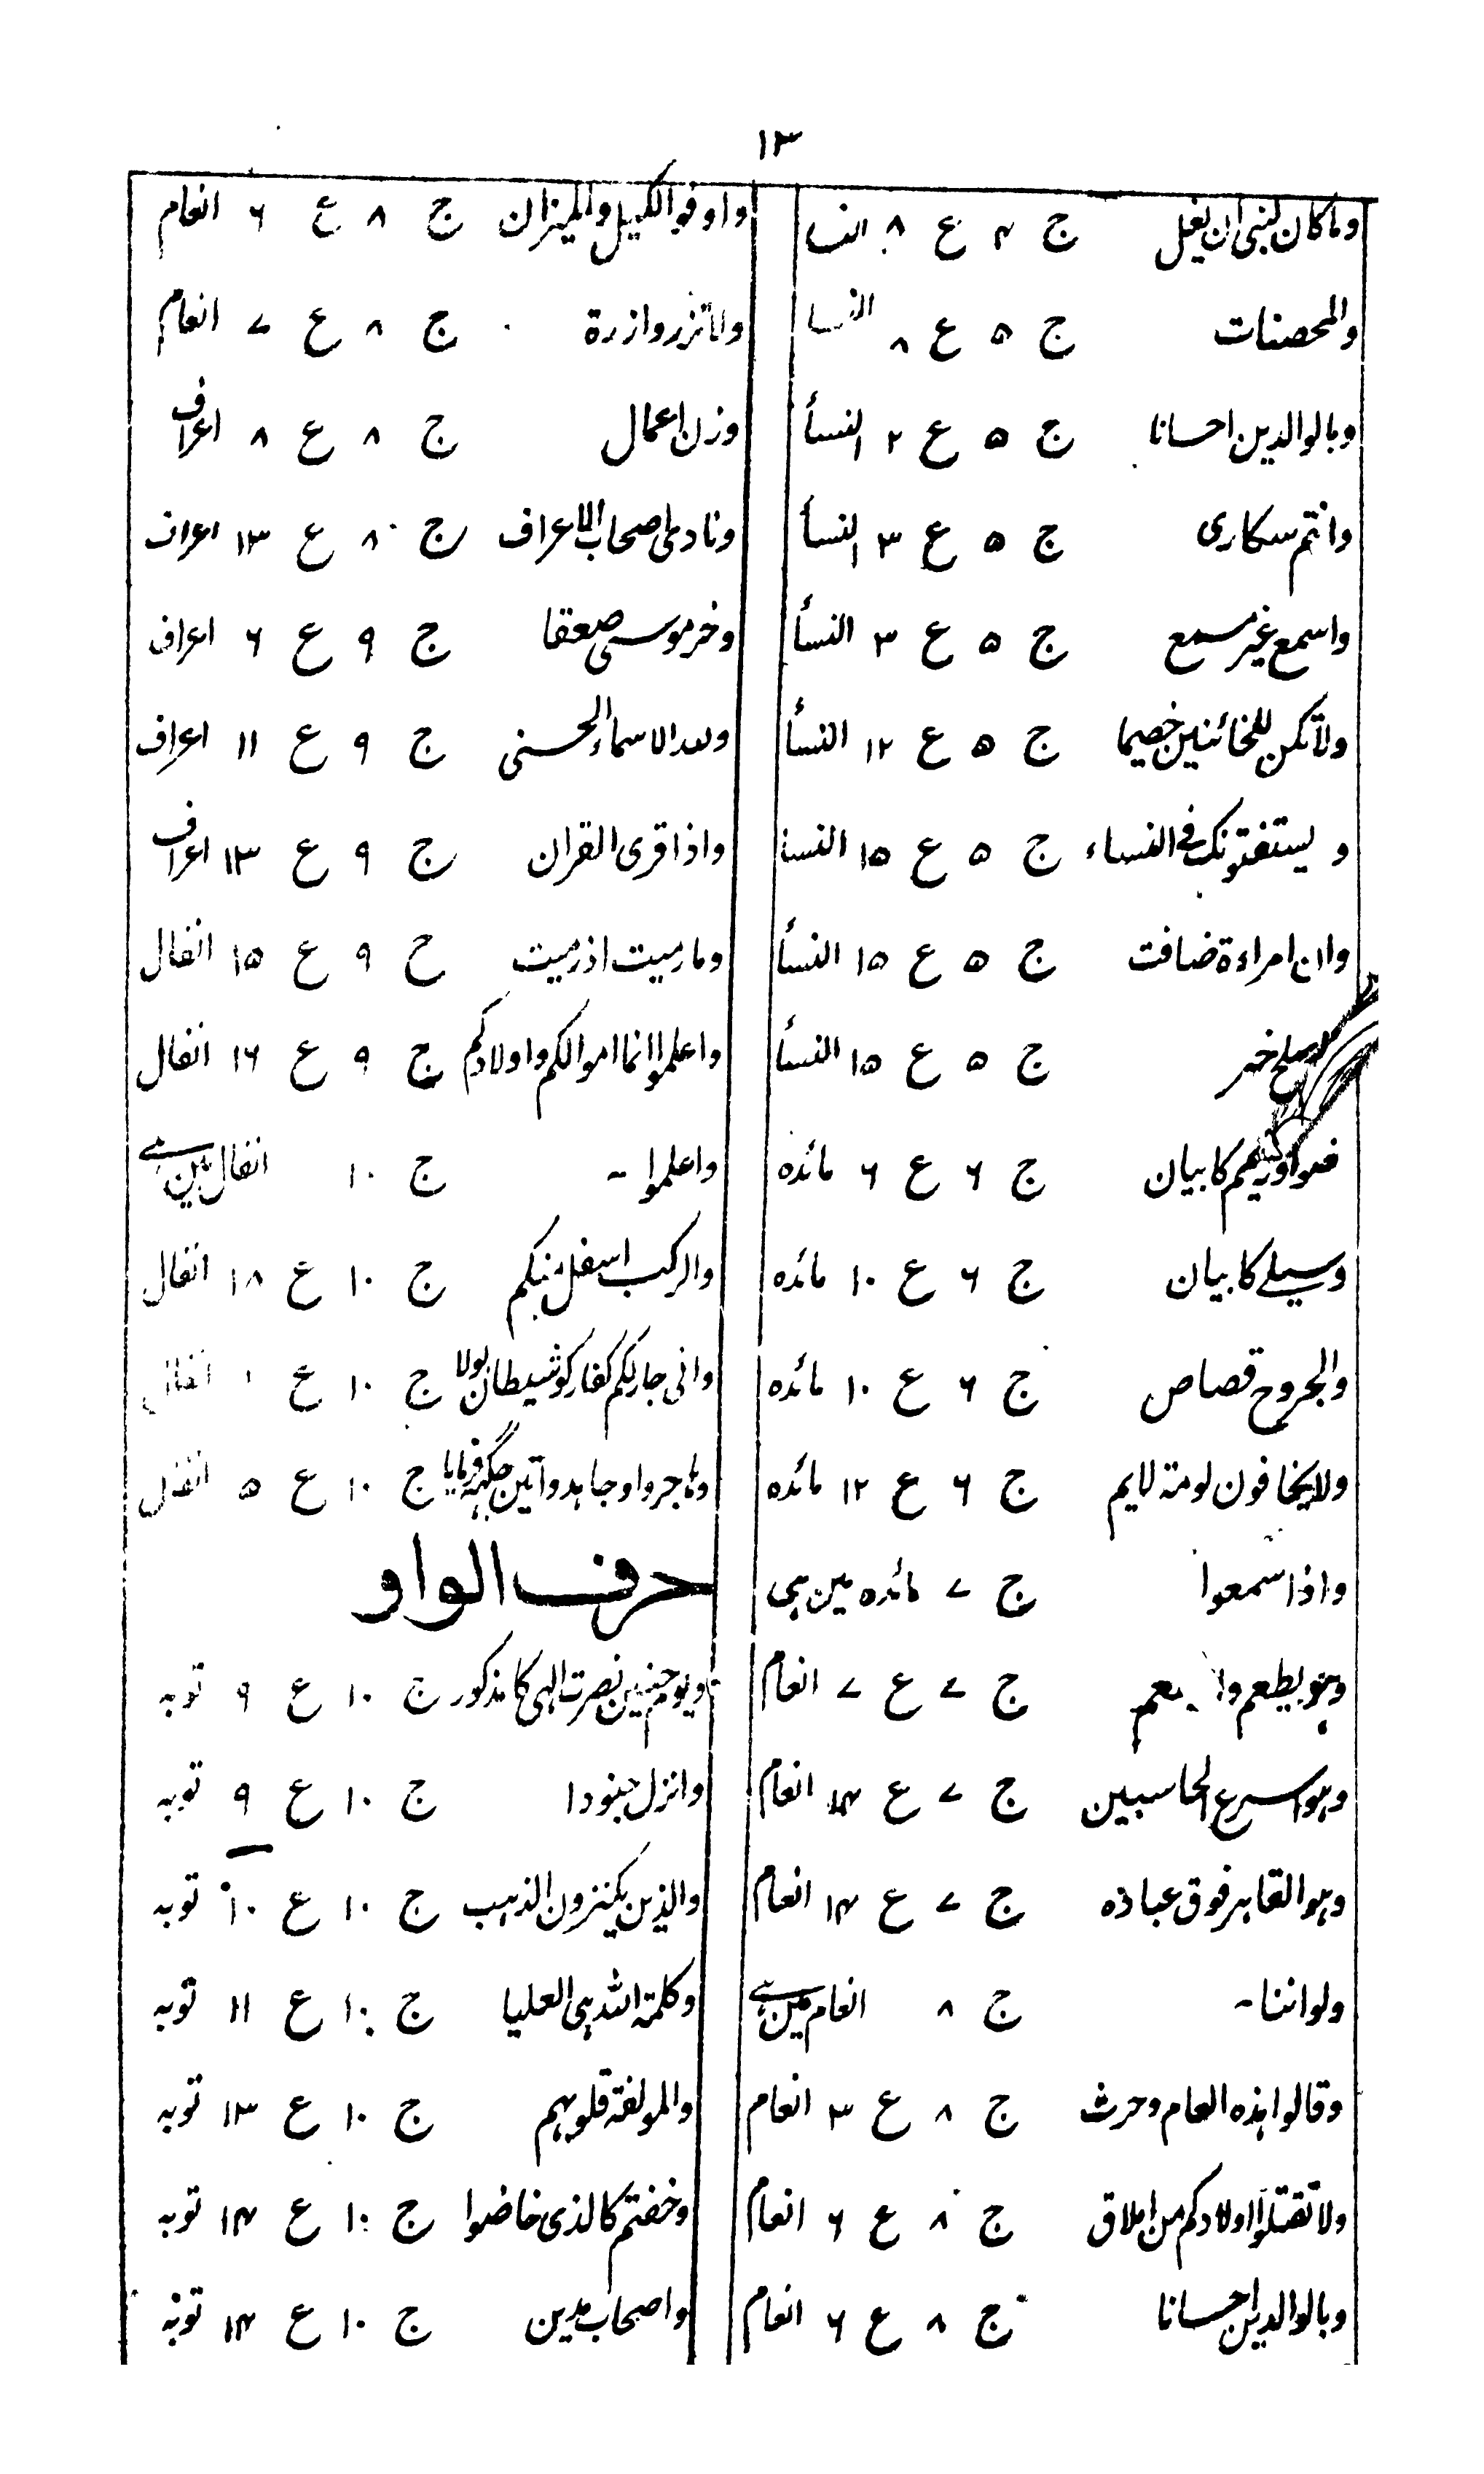 ۱۳
وما کان لنبی ان یغل ج ۴ ع ۸
والمحصنات ج ۵ ع ۸ النسا
وبالوالدین احسانا ج ۵ ع ۲ النسأ
وانتم سکاری ج ۵ ع ۳ النسأ
واسمع غیر مسمع ج ۵ ع ۳ النسأ
ولا تکن للخائنین خصیما ج ۵ ع ۱۲ النسأ
و یستفتونک فی النساء ج ۵ ع ۱۵ النسأ
وان امراءة ضافت ج ۵ ع ۱۵ النسأ
خیر ج ۵ ع ۱۵ النسأ
کا بیان ج ۶ ع ۶ مائده
وسیلے کا بیان ج ۶ ع ۱۰ مائده
والجروح قصاص ج ۶ ع ۱۰ مائده
ولا یخافون لومة لایم ج ۶ ع ۱۲ مائده
واذا سمعوا ج ۷ مائده مین ہی
وہو یطعم ولا ج ۷ ع ۷ انعام
وہو اسرع الحاسبین ج ۷ ع ۱۴ انعام
وہو القاہر فوق عباده ج ۷ ع ۱۴ انعام
ولو اننا - ج ۸ انعام مین ہے
وقالوا ہذه العام وحرث ج ۸ ع ۳ انعام
ولا تقتلوا اولادکم من املاق ج ۸ ع ۶ انعام
وبالوالدین احسانا ج ۸ ع ۶ انعام
واوفوا الکیل والمیزان ج ۸ ع ۶ انعام
ولا تزر وازرة ج ۸ ع ۷ انعام
وزن اعمال ج ۸ ع ۸ اعراف
ونادی اصحاب الاعراف ج ۸ ع ۱۳ اعراف
وخر موسی صعقا ج ۹ ع ۶ اعراف
وللہ الاسماء الحسنی ج ۹ ع ۱۱ اعراف
واذا قری القران ج ۹ ع ۱۳ اعراف
وما رمیت اذ رمیت ج ۹ ع ۱۵ انفال
واعلموا انما اموالکم واولادکم ج ۹ ع ۱۶ انفال
واعلموا - ج ۱۰ انفال مین ہے
والرکب اسفل منکم ج ۱۰ ع ۱۸ انفال
وانی جار لکم کفار کو شیطان بولا ج ۱۰ ع انفال
وہاجروا وجاہدوا تین جگہہ فرمایا ج ۱۰ ع ۵ انفال
حرف الواو
ویوم حنین نصرت الہی کا مذکور ج ۱۰ ع ۹ توبہ
وانزل جنودا ج ۱۰ ع ۹ توبہ
والذین یکنزون الذہب ج ۱۰ ع ۱۰ توبہ
وکلمة اللہ ہی العلیا ج ۱۰ ع ۱۱ توبہ
والمولفة قلوبہم ج ۱۰ ع ۱۳ توبہ
وخضتم کالذی خاضوا ج ۱۰ ع ۱۴ توبہ
واصحاب مدین ج ۱۰ ع ۱۴ توبہ